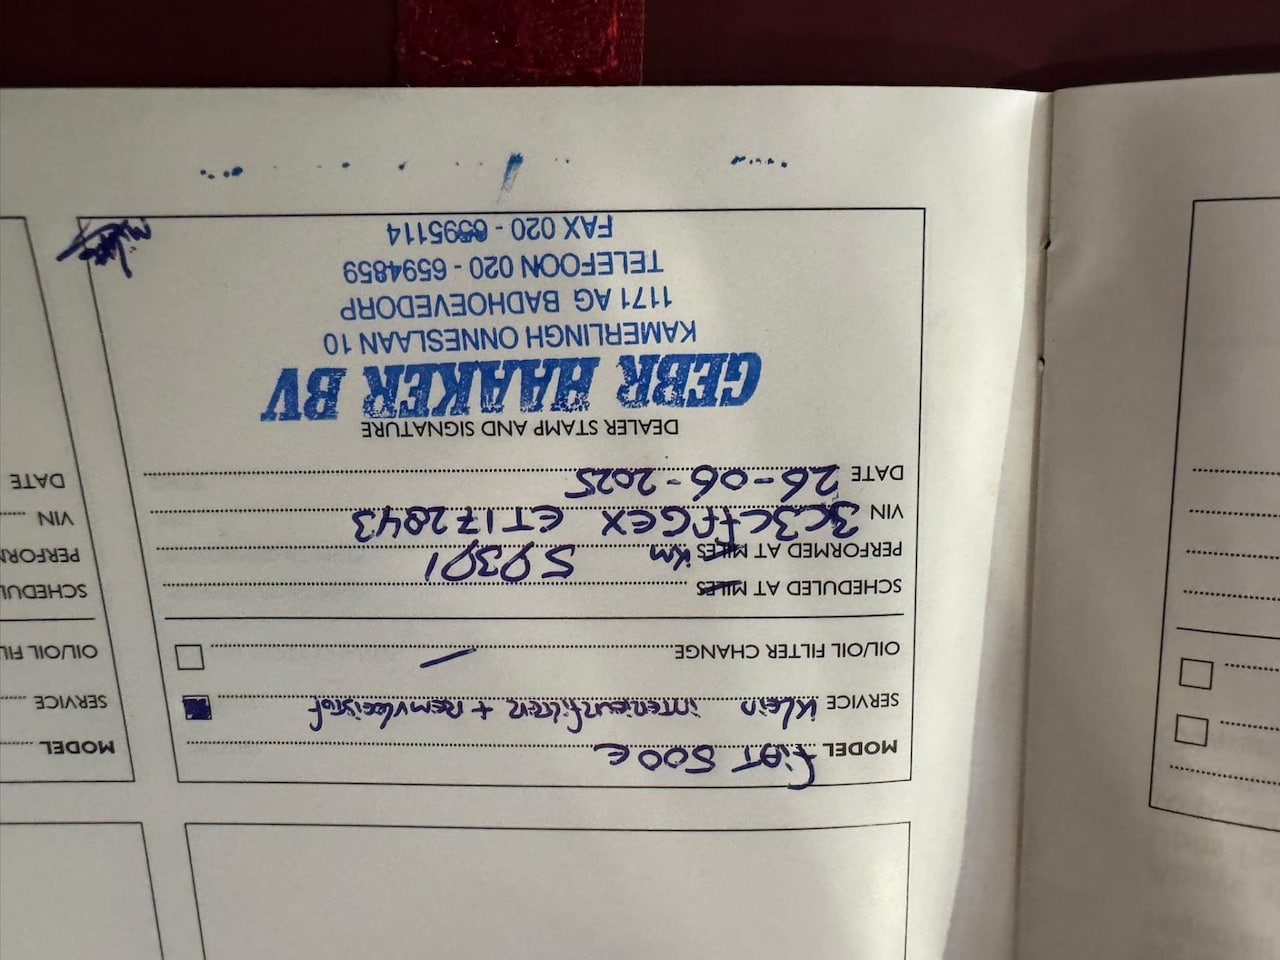 MODEL FiAT 500e
SERVICE Klein interieurfilter + Remvloeistof
OIL/OIL FILTER CHANGE /
SCHEDULED AT MILES
PERFORMED AT MILES km 59391
VIN 3C3CffGEX ET172843
DATE 26-06-2025
DEALER STAMP AND SIGNATURE
GEBR HAAKER BV
KAMERLINGH ONNESLAAN 10
1171 AG BADHOEVEDORP
TELEFOON 020 - 6594859
FAX 020 - 6595114
MODEL
SERVICE
OIL/OIL FIL
SCHEDUL
PERFORM
VIN
DATE